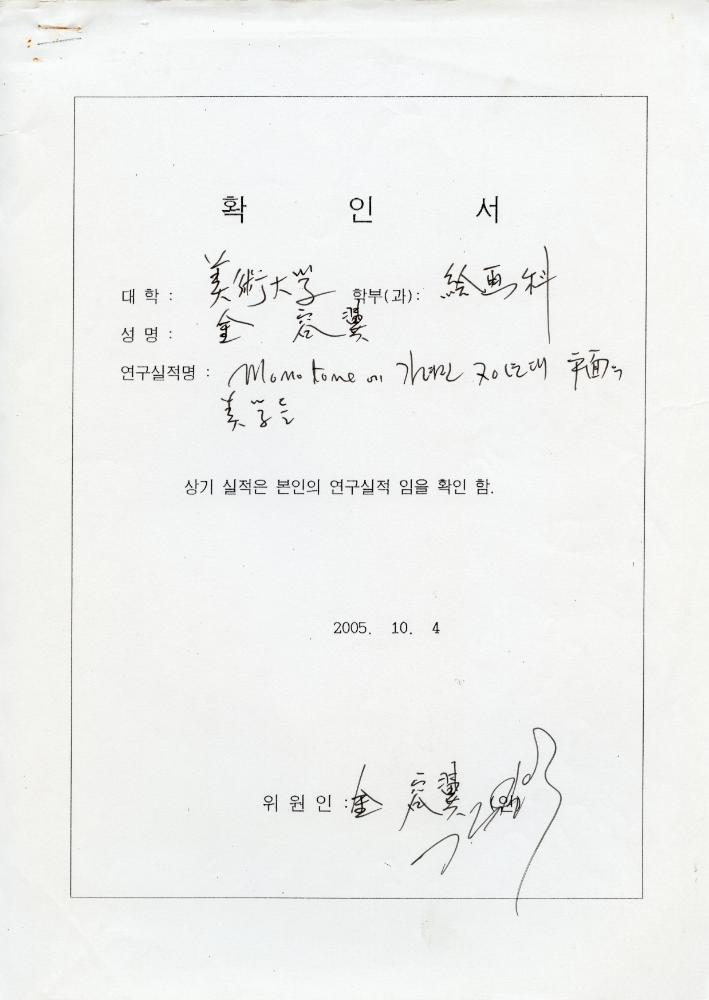 확 인 서
대 학 : 美術大学 학부(과): 絵画科
성 명 : 金 容翼
연구실적명 : Monotone에 가려진 70년대 平面의
美学들
상기 실적은 본인의 연구실적 임을 확인 함.
2005. 10. 4
위 원 인 : 金 容翼 (인)